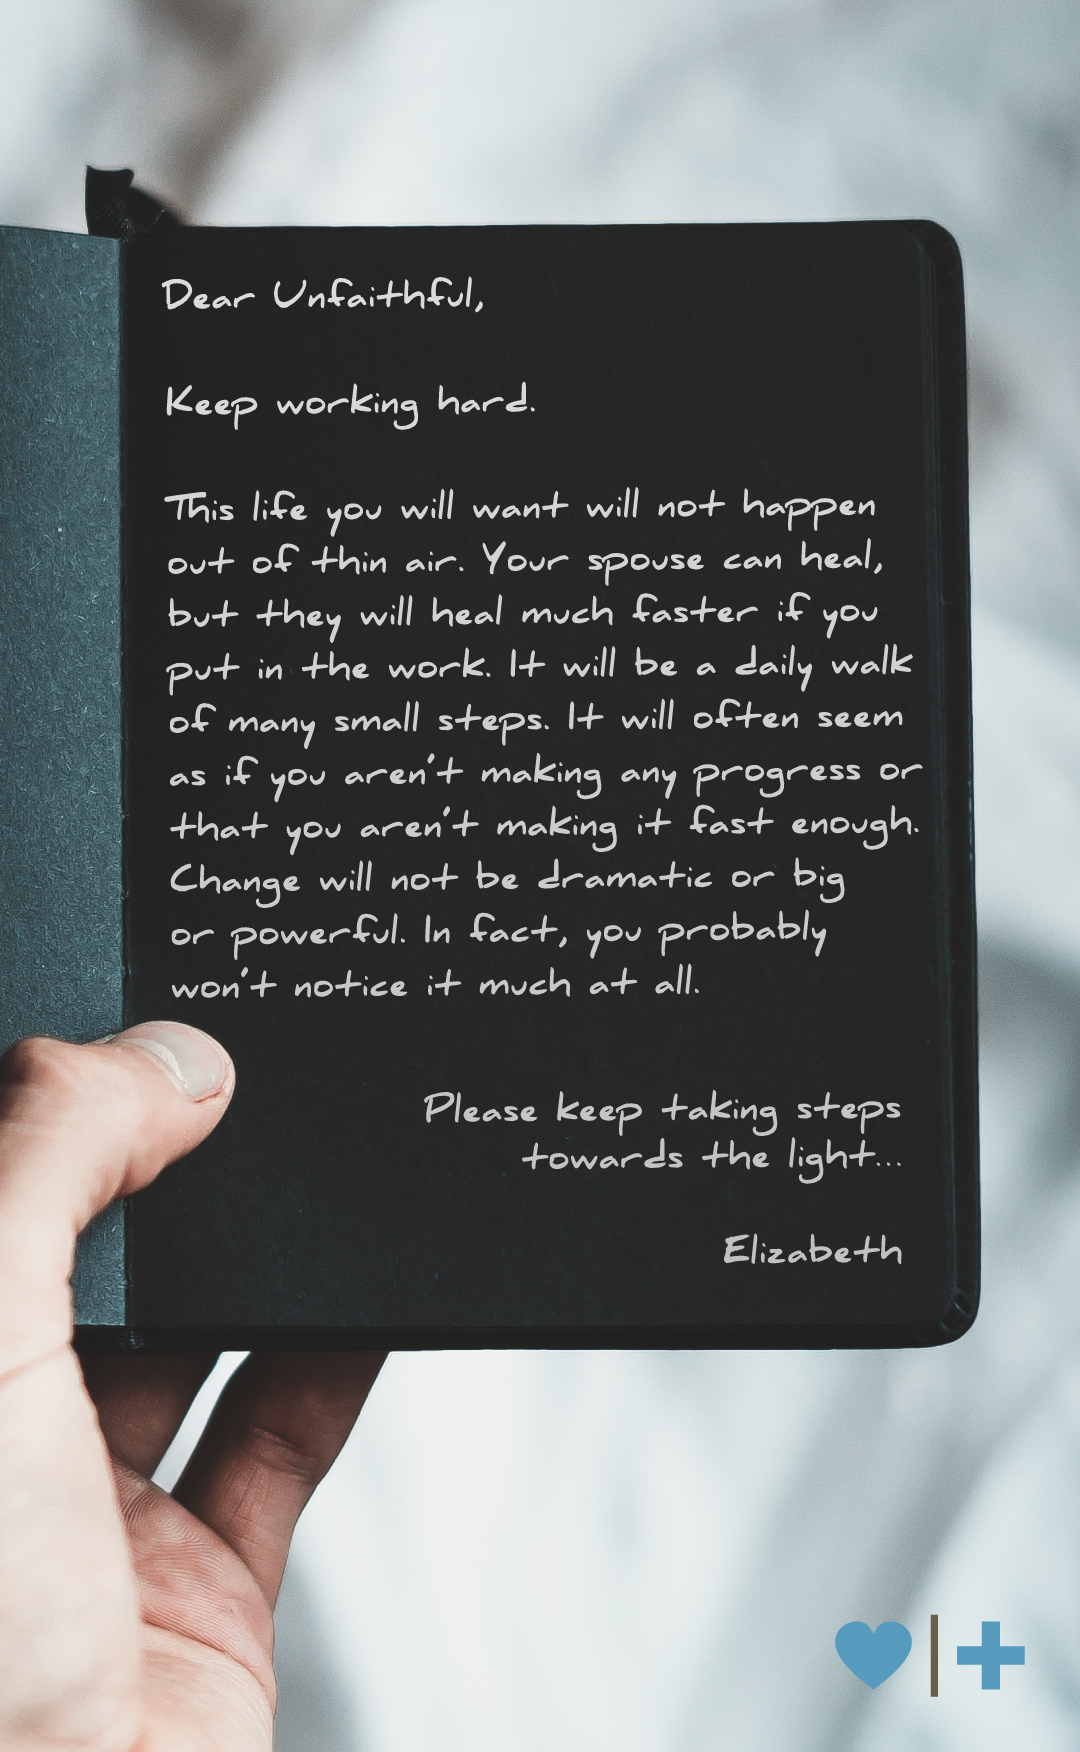 Dear Unfaithful,
Keep working hard.
This life you will want will not happen
out of thin air. Your spouse can heal,
but they will heal much faster if you
put in the work. It will be a daily walk
of many small steps. It will often seem
as if you aren't making any progress or
that you aren't making it fast enough.
Change will not be dramatic or big
or powerful. In fact, you probably
won't notice it much at all.
Please keep taking steps
towards the light...
Elizabeth